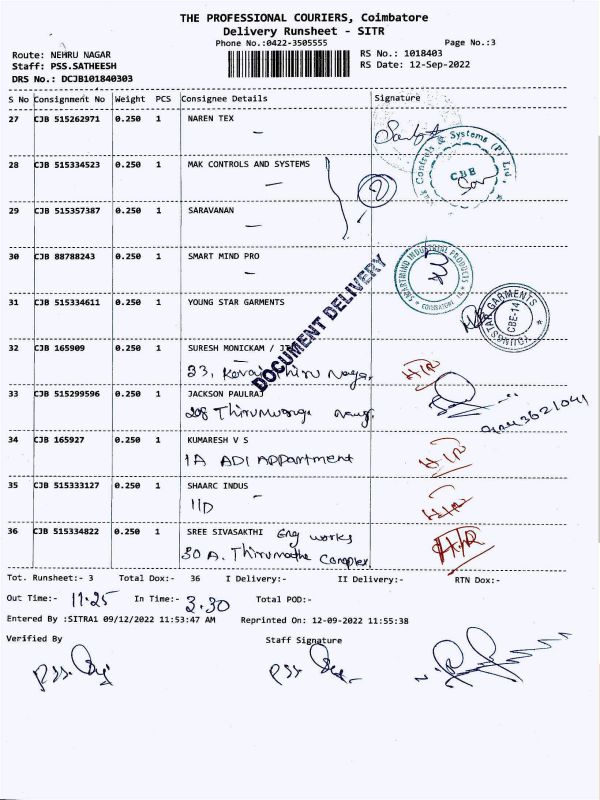 THE PROFESSIONAL COURIERS, Coimbatore
Delivery Runsheet - SITR
Phone No.:0422-3505555 Page No.:3
Route: NEHRU NAGAR RS No.: 1018403
Staff: PSS.SATHEESH RS Date: 12-Sep-2022
DRS No.: DCJB101840303
S No Consignment No Weight PCS Consignee Details Signature
27 CJB 515262971 0.250 1 NAREN TEX
28 CJB 515334523 0.250 1 MAK CONTROLS AND SYSTEMS
Mak Controls & Systems (P) Ltd.,
CBB
29 CJB 515357387 0.250 1 SARAVANAN
30 CJB 88788243 0.250 1 SMART MIND PRO
SMARTMIND INDUSTRIAL PRODUCTS
COIMBATORE
DOCUMENT DELIVERY
31 CJB 515334611 0.250 1 YOUNG STAR GARMENTS
YOUNGSTAR GARMENTS
CBE-14
32 CJB 165909 0.250 1 SURESH MONICKAM /
33, Kovai Thiru Nagar. H/R
33 CJB 515299596 0.250 1 JACKSON PAULRAJ
208
34 CJB 165927 0.250 1 KUMARESH V S
1A ADI APPartment H/R
35 CJB 515333127 0.250 1 SHAARC INDUS
11D H/R
36 CJB 515334822 0.250 1 SREE SIVASAKTHI Eng works
30 A. Complex. H/R
Tot. Runsheet:- 3 Total Dox:- 36 I Delivery:- II Delivery:- RTN Dox:-
Out Time:- 11.25 In Time:- 3.30 Total POD:-
Entered By :SITRA1 09/12/2022 11:53:47 AM Reprinted On: 12-09-2022 11:55:38
Verified By Staff Signature